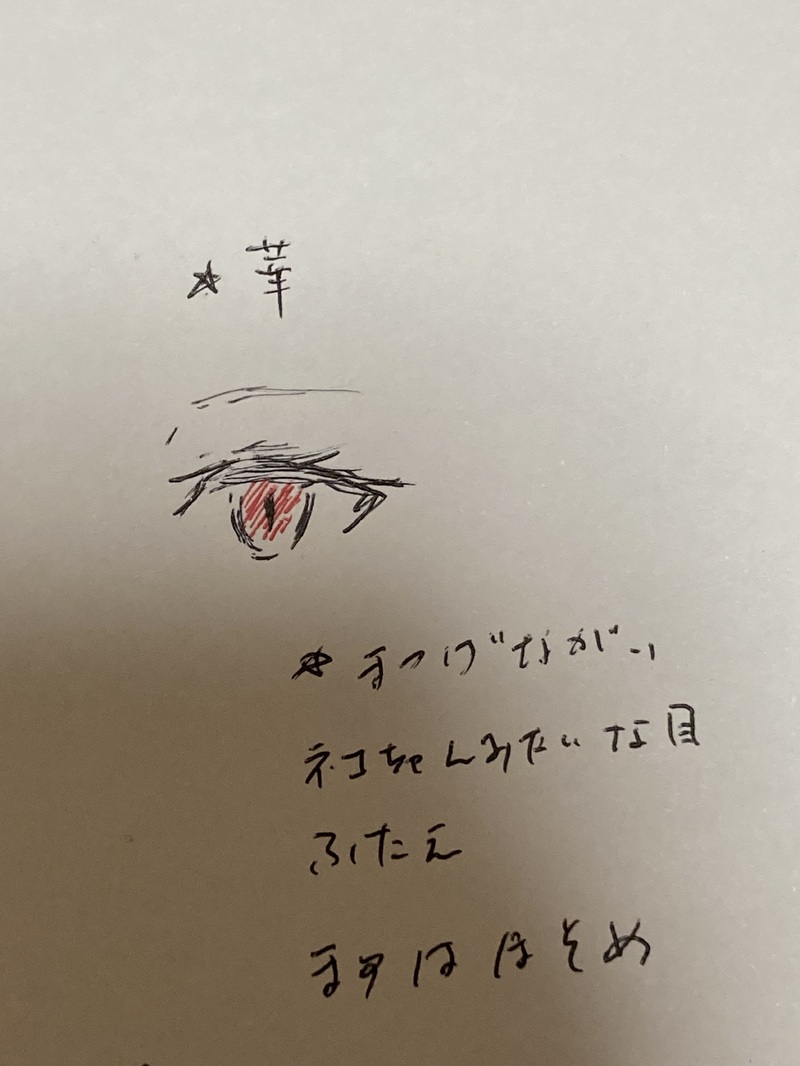 ☆ 華
☆ まつげながい
ネコちゃんみたいな目
ふたえ
まゆはほそめ